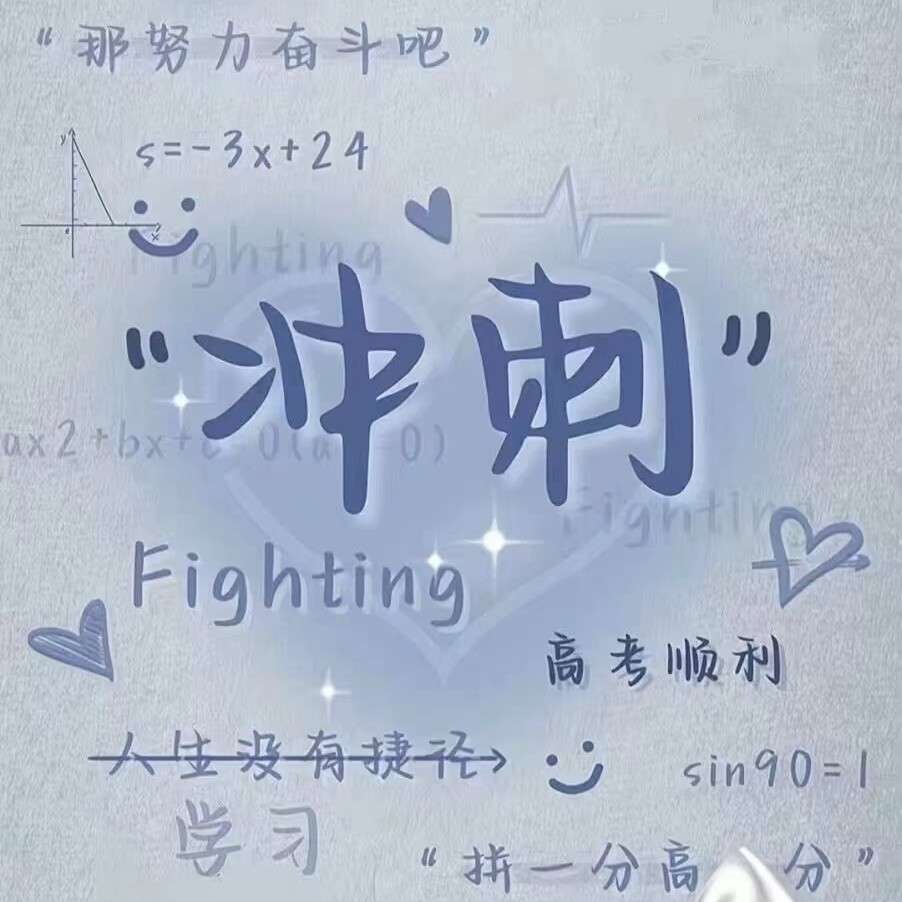 “那努力奋斗吧”
y
s=-3x+24
x
Fighting
“冲刺”
ax2+bx+c=0(a
=0)
Fighting
Fighting
高考顺利
人生没有捷径
sin90=1
学习
“拼一分高
分”